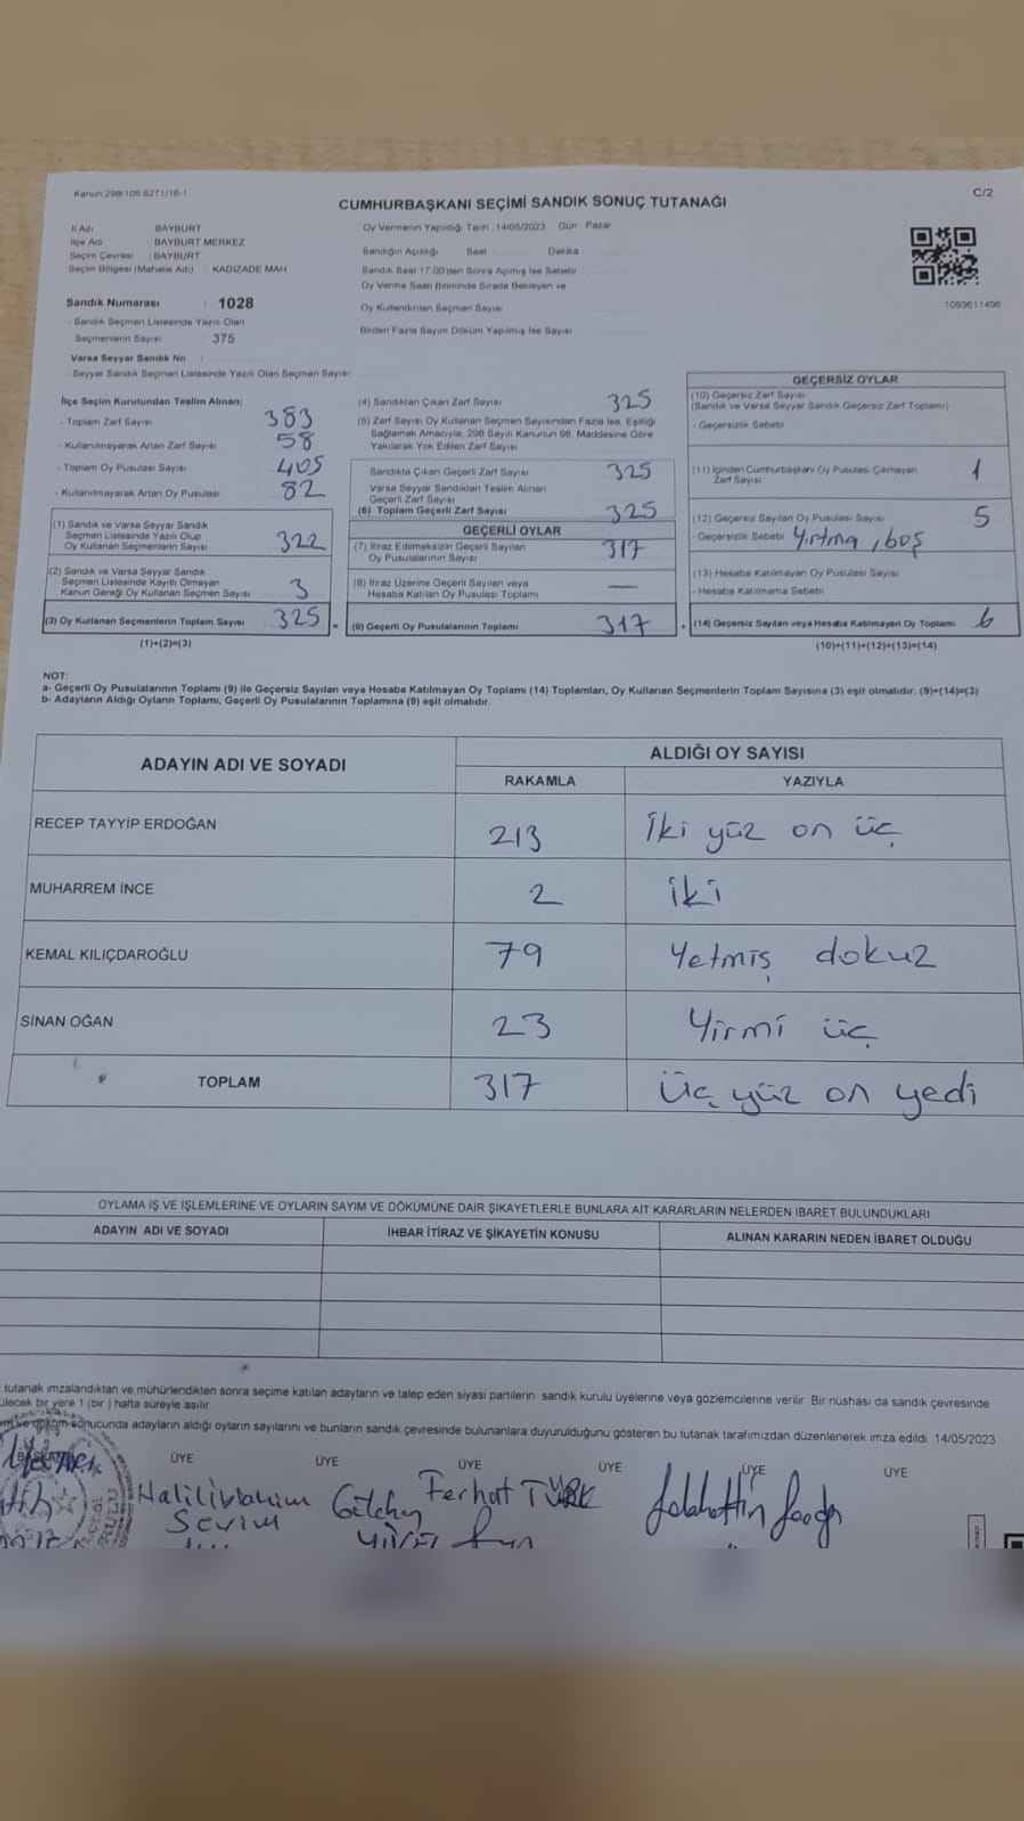 Kanun:298/105 6271/16-1
C/2
CUMHURBAŞKANI SEÇİMİ SANDIK SONUÇ TUTANAĞI
İl Adı : BAYBURT
İlçe Adı : BAYBURT MERKEZ
Seçim Çevresi : BAYBURT
Seçim Bölgesi (Mahalle Adı) : KADIZADE MAH
Sandık Numarası : 1028
- Sandık Seçmen Listesinde Yazılı Olan
Seçmenlerin Sayısı 375
Varsa Seyyar Sandık No :
- Seyyar Sandık Seçmen Listesinde Yazılı Olan Seçmen Sayısı
Oy Vermenin Yapıldığı Tarih : 14/05/2023 Gün : Pazar
Sandığın Açıldığı Saat Dakika
Sandık Saat 17:00'den Sonra Açılmış İse Sebebi
Oy Verme Saati Bitiminde Sırada Bekleyen ve
Oy Kullandırılan Seçmen Sayısı
Birden Fazla Sayım Döküm Yapılmış İse Sayısı
1093611496
İlçe Seçim Kurulundan Teslim Alınan;
- Toplam Zarf Sayısı 383
- Kullanılmayarak Artan Zarf Sayısı 58
- Toplam Oy Pusulası Sayısı 405
- Kullanılmayarak Artan Oy Pusulası 82
(1) Sandık ve Varsa Seyyar Sandık
Seçmen Listesinde Yazılı Olup
Oy Kullanan Seçmenlerin Sayısı 322
(2) Sandık ve Varsa Seyyar Sandık
Seçmen Listesinde Kayıtlı Olmayan
Kanun Gereği Oy Kullanan Seçmen Sayısı 3
(3) Oy Kullanan Seçmenlerin Toplam Sayısı 325
(1)+(2)=(3)
(4) Sandıktan Çıkan Zarf Sayısı 325
(5) Zarf Sayısı Oy Kullanan Seçmen Sayısından Fazla İse, Eşitliği
Sağlamak Amacıyla, 298 Sayılı Kanunun 98. Maddesine Göre
Yakılarak Yok Edilen Zarf Sayısı
Sandıkta Çıkan Geçerli Zarf Sayısı 325
Varsa Seyyar Sandıktan Teslim Alınan
Geçerli Zarf Sayısı
(6) Toplam Geçerli Zarf Sayısı 325
GEÇERLİ OYLAR
(7) İtiraz Edilmeksizin Geçerli Sayılan
Oy Pusulalarının Sayısı 317
(8) İtiraz Üzerine Geçerli Sayılan veya
Hesaba Katılan Oy Pusulası Toplamı —
(9) Geçerli Oy Pusulalarının Toplamı 317
GEÇERSİZ OYLAR
(10) Geçersiz Zarf Sayısı
(Sandık ve Varsa Seyyar Sandık Geçersiz Zarf Toplamı)
- Geçersizlik Sebebi
(11) İçinden Cumhurbaşkanı Oy Pusulası Çıkmayan
Zarf Sayısı 1
(12) Geçersiz Sayılan Oy Pusulası Sayısı 5
- Geçersizlik Sebebi Yırtma, boş
(13) Hesaba Katılmayan Oy Pusulası Sayısı
- Hesaba Katılmama Sebebi
(14) Geçersiz Sayılan veya Hesaba Katılmayan Oy Toplamı 6
(10)+(11)+(12)+(13)=(14)
NOT:
a- Geçerli Oy Pusulalarının Toplamı (9) ile Geçersiz Sayılan veya Hesaba Katılmayan Oy Toplamı (14) Toplamları, Oy Kullanan Seçmenlerin Toplam Sayısına (3) eşit olmalıdır. (9)+(14)=(3)
b- Adayların Aldığı Oyların Toplamı, Geçerli Oy Pusulalarının Toplamına (9) eşit olmalıdır.
ADAYIN ADI VE SOYADI ALDIĞI OY SAYISI
RAKAMLA YAZIYLA
RECEP TAYYİP ERDOĞAN 213 İki yüz on üç
MUHARREM İNCE 2 iki
KEMAL KILIÇDAROĞLU 79 Yetmiş dokuz
SİNAN OĞAN 23 Yirmi üç
TOPLAM 317 Üç yüz on yedi
OYLAMA İŞ VE İŞLEMLERİNE VE OYLARIN SAYIM VE DÖKÜMÜNE DAİR ŞİKAYETLERLE BUNLARA AİT KARARLARIN NELERDEN İBARET BULUNDUKLARI
ADAYIN ADI VE SOYADI İHBAR İTİRAZ VE ŞİKAYETİN KONUSU ALINAN KARARIN NEDEN İBARET OLDUĞU
tutanak imzalandıktan ve mühürlendikten sonra seçime katılan adayların ve talep eden siyasi partilerin sandık kurulu üyelerine veya gözlemcilerine verilir. Bir nüshası da sandık çevresinde
bir yere 1 (bir) hafta süreyle asılır.
sonucunda adayların aldığı oyların sayılarını ve bunların sandık çevresinde bulunanlara duyurulduğunu gösteren bu tutanak tarafımızdan düzenlenerek imza edildi. 14/05/2023
ÜYE ÜYE ÜYE ÜYE ÜYE ÜYE
Halilibrahim Ferhat TÜRK
Sevim